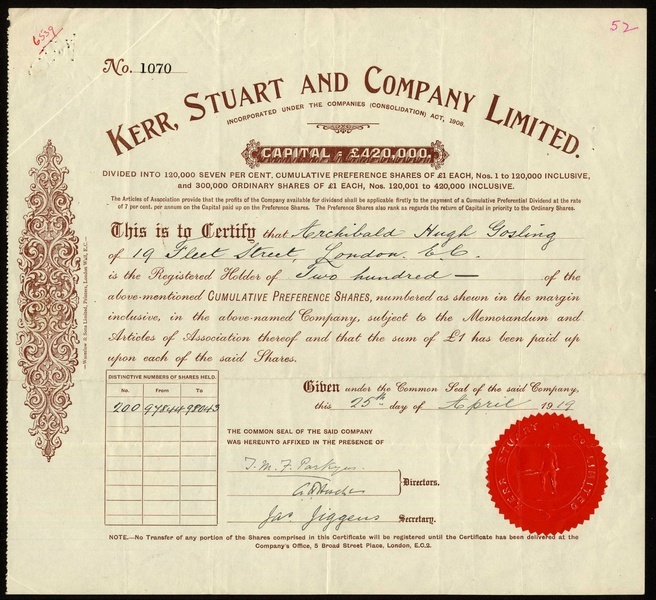 6539
52
No. 1070
KERR, STUART AND COMPANY LIMITED.
INCORPORATED UNDER THE COMPANIES (CONSOLIDATION) ACT, 1908.
CAPITAL - £420,000.
DIVIDED INTO 120,000 SEVEN PER CENT. CUMULATIVE PREFERENCE SHARES OF £1 EACH, Nos. 1 to 120,000 INCLUSIVE,
and 300,000 ORDINARY SHARES OF £1 EACH, Nos. 120,001 to 420,000 INCLUSIVE.
The Articles of Association provide that the profits of the Company available for dividend shall be applicable firstly to the payment of a Cumulative Preferential Dividend at the rate
of 7 per cent. per annum on the Capital paid up on the Preference Shares. The Preference Shares also rank as regards the return of Capital in priority to the Ordinary Shares.
This is to Certify that Archibald Hugh Gosling
of 19 Fleet Street, London. E.C.
is the Registered Holder of Two hundred — of the
above-mentioned CUMULATIVE PREFERENCE SHARES, numbered as shewn in the margin
inclusive, in the above-named Company, subject to the Memorandum and
Articles of Association thereof and that the sum of £1 has been paid up
upon each of the said Shares.
DISTINCTIVE NUMBERS OF SHARES HELD.
No. From To
200 97844 98043
Given under the Common Seal of the said Company,
this 25th day of April 1919
THE COMMON SEAL OF THE SAID COMPANY
WAS HEREUNTO AFFIXED IN THE PRESENCE OF
Directors.
Jas Jiggens Secretary.
KERR STUART & CO LIMITED
NOTE.—No Transfer of any portion of the Shares comprised in this Certificate will be registered until the Certificate has been delivered at the
Company's Office, 5 Broad Street Place, London, E.C.2.